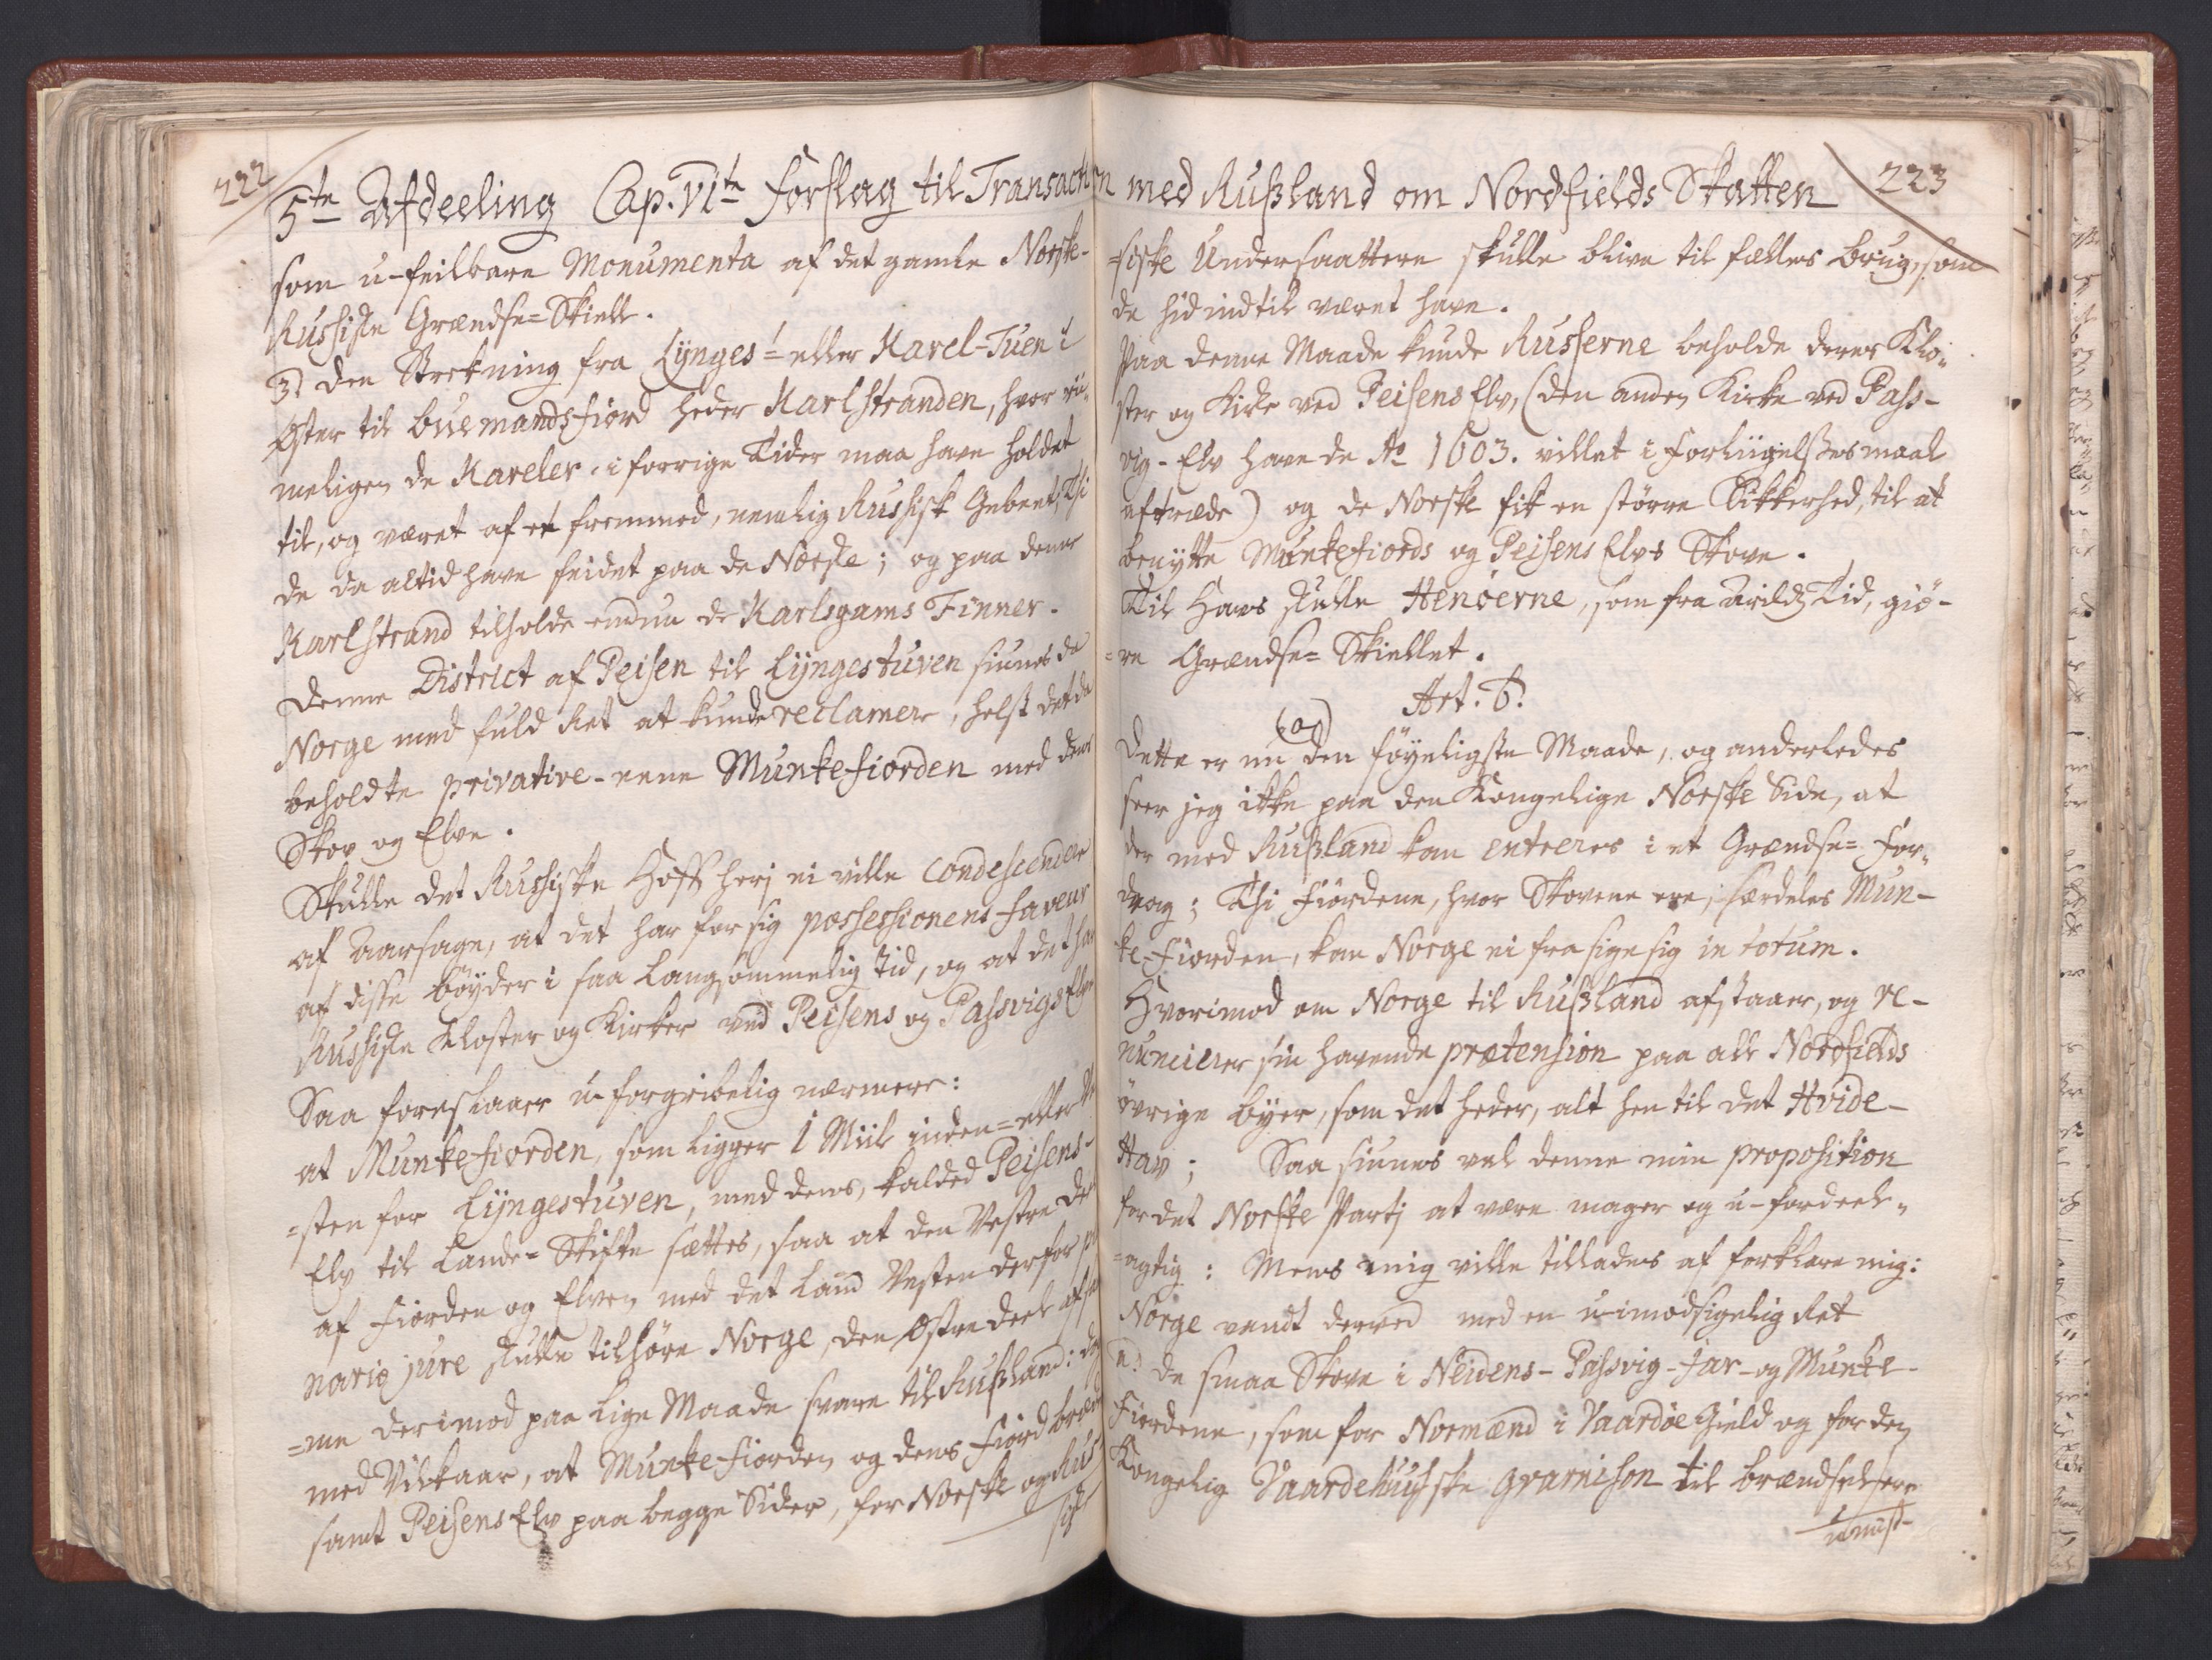 222
5te Afdeeling Cap. VIte Forslag til Transaction med Rusland om Nordfields Skatten
223
som u-feilbare Monumenta af det gamle Norske-
Russiske Grændse-Skiell.
3. Den Strekning fra Lynges- eller Karel-Tuen i
Øster til Buemandsfiord heder Karlstranden, hvor rü-
meligen de Kareler i forrige Tider maa have holdet
til, og været af et fremmed, nemlig Russisk Gebeet, Thi
de da altid have feidet paa de Norske; og paa denne
Karlstrand tilholde endnu de Karlsgams Finner.
Denne District af Peisen til Lyngestuven siunes da
Norge med fuld Ret at kunde reclamere, helst det da
beholdte privative-eene Munkefiorden med dens
Skov og Elve.
Skulle det Russiske Hoff herj ei ville condescendere
af Aarsage, at det har for sig possessionens faveur
af disse Bøyder i saa langsommelig Tid, og at det har
Russiske Kloster og Kirker ved Peisens og Passvigs Elve
Saa foreslaaer u-forgribelig nærmere:
at Munkefiorden, som ligger 1 Miil inden- eller Ve
-sten for Lyngestuven, med dens, kalded Peisens-
Elv til Lande-Skifte sættes, saa at den Vestre Deel
af Fiorden og Elven med det Land Vesten derfor
nario jure skulle tilhøre Norge, den Østre Deel
-me derimod paa lige Maade svare til Rusland:
med Vilkaar, at Munkefiorden og dens Fiord
samt Peisens Elv paa begge Sider, for Norske og Rus-
siske
-siske Undersaattere skulle blive til fælles Brug, som
de hid indtil været have.
Paa denne Maade kunde Russerne beholde deres Klo-
ster og Kirke ved Peisens Elv, (den anden Kirke ved Pass-
vig-Elv have de Ao 1603. villet i Forliigelsesmaal
aftræde) og de Norske fik en større Sikkerhed, til at
benytte Munkefiords og Peisens Elvs Skove.
Til Havs skulle Henøerne, som fra Arilds Tid, giø-
-re Grændse-Skiellet.
Art. 6.
(a)
Dette er nu den føyeligste Maade, og anderledes
seer jeg ikke paa den Kongelige Norske Side, at
der med Rusland kan entreres i et Grændse-For-
drag; Thi Fiordene, hvor Skovene ere, særdeles Mun-
ke-Fiorden, kan Norge ei frasige sig in totum.
Hvorimod om Norge til Rusland afstaaer, og re-
nuncierer sin havende prætension paa all Nordfields
øvrige Byer, som det heder, alt hen til det Hvide-
Hav; Saa siunes vel denne min proposition
for det Norske Partj at være mager og u-fordeel-
-agtig: Mens mig ville tillades at forklare mig:
Norge vandt derved med en u-imodsigelig Ret
a. De smaa Skove i Neidens- Passvig- Jar- og Munke-
Fiordene, som for Normænd i Vaardøe Gield og for den
Kongelig Vaardehuusske gvarnison til Brændsel ere
umist-